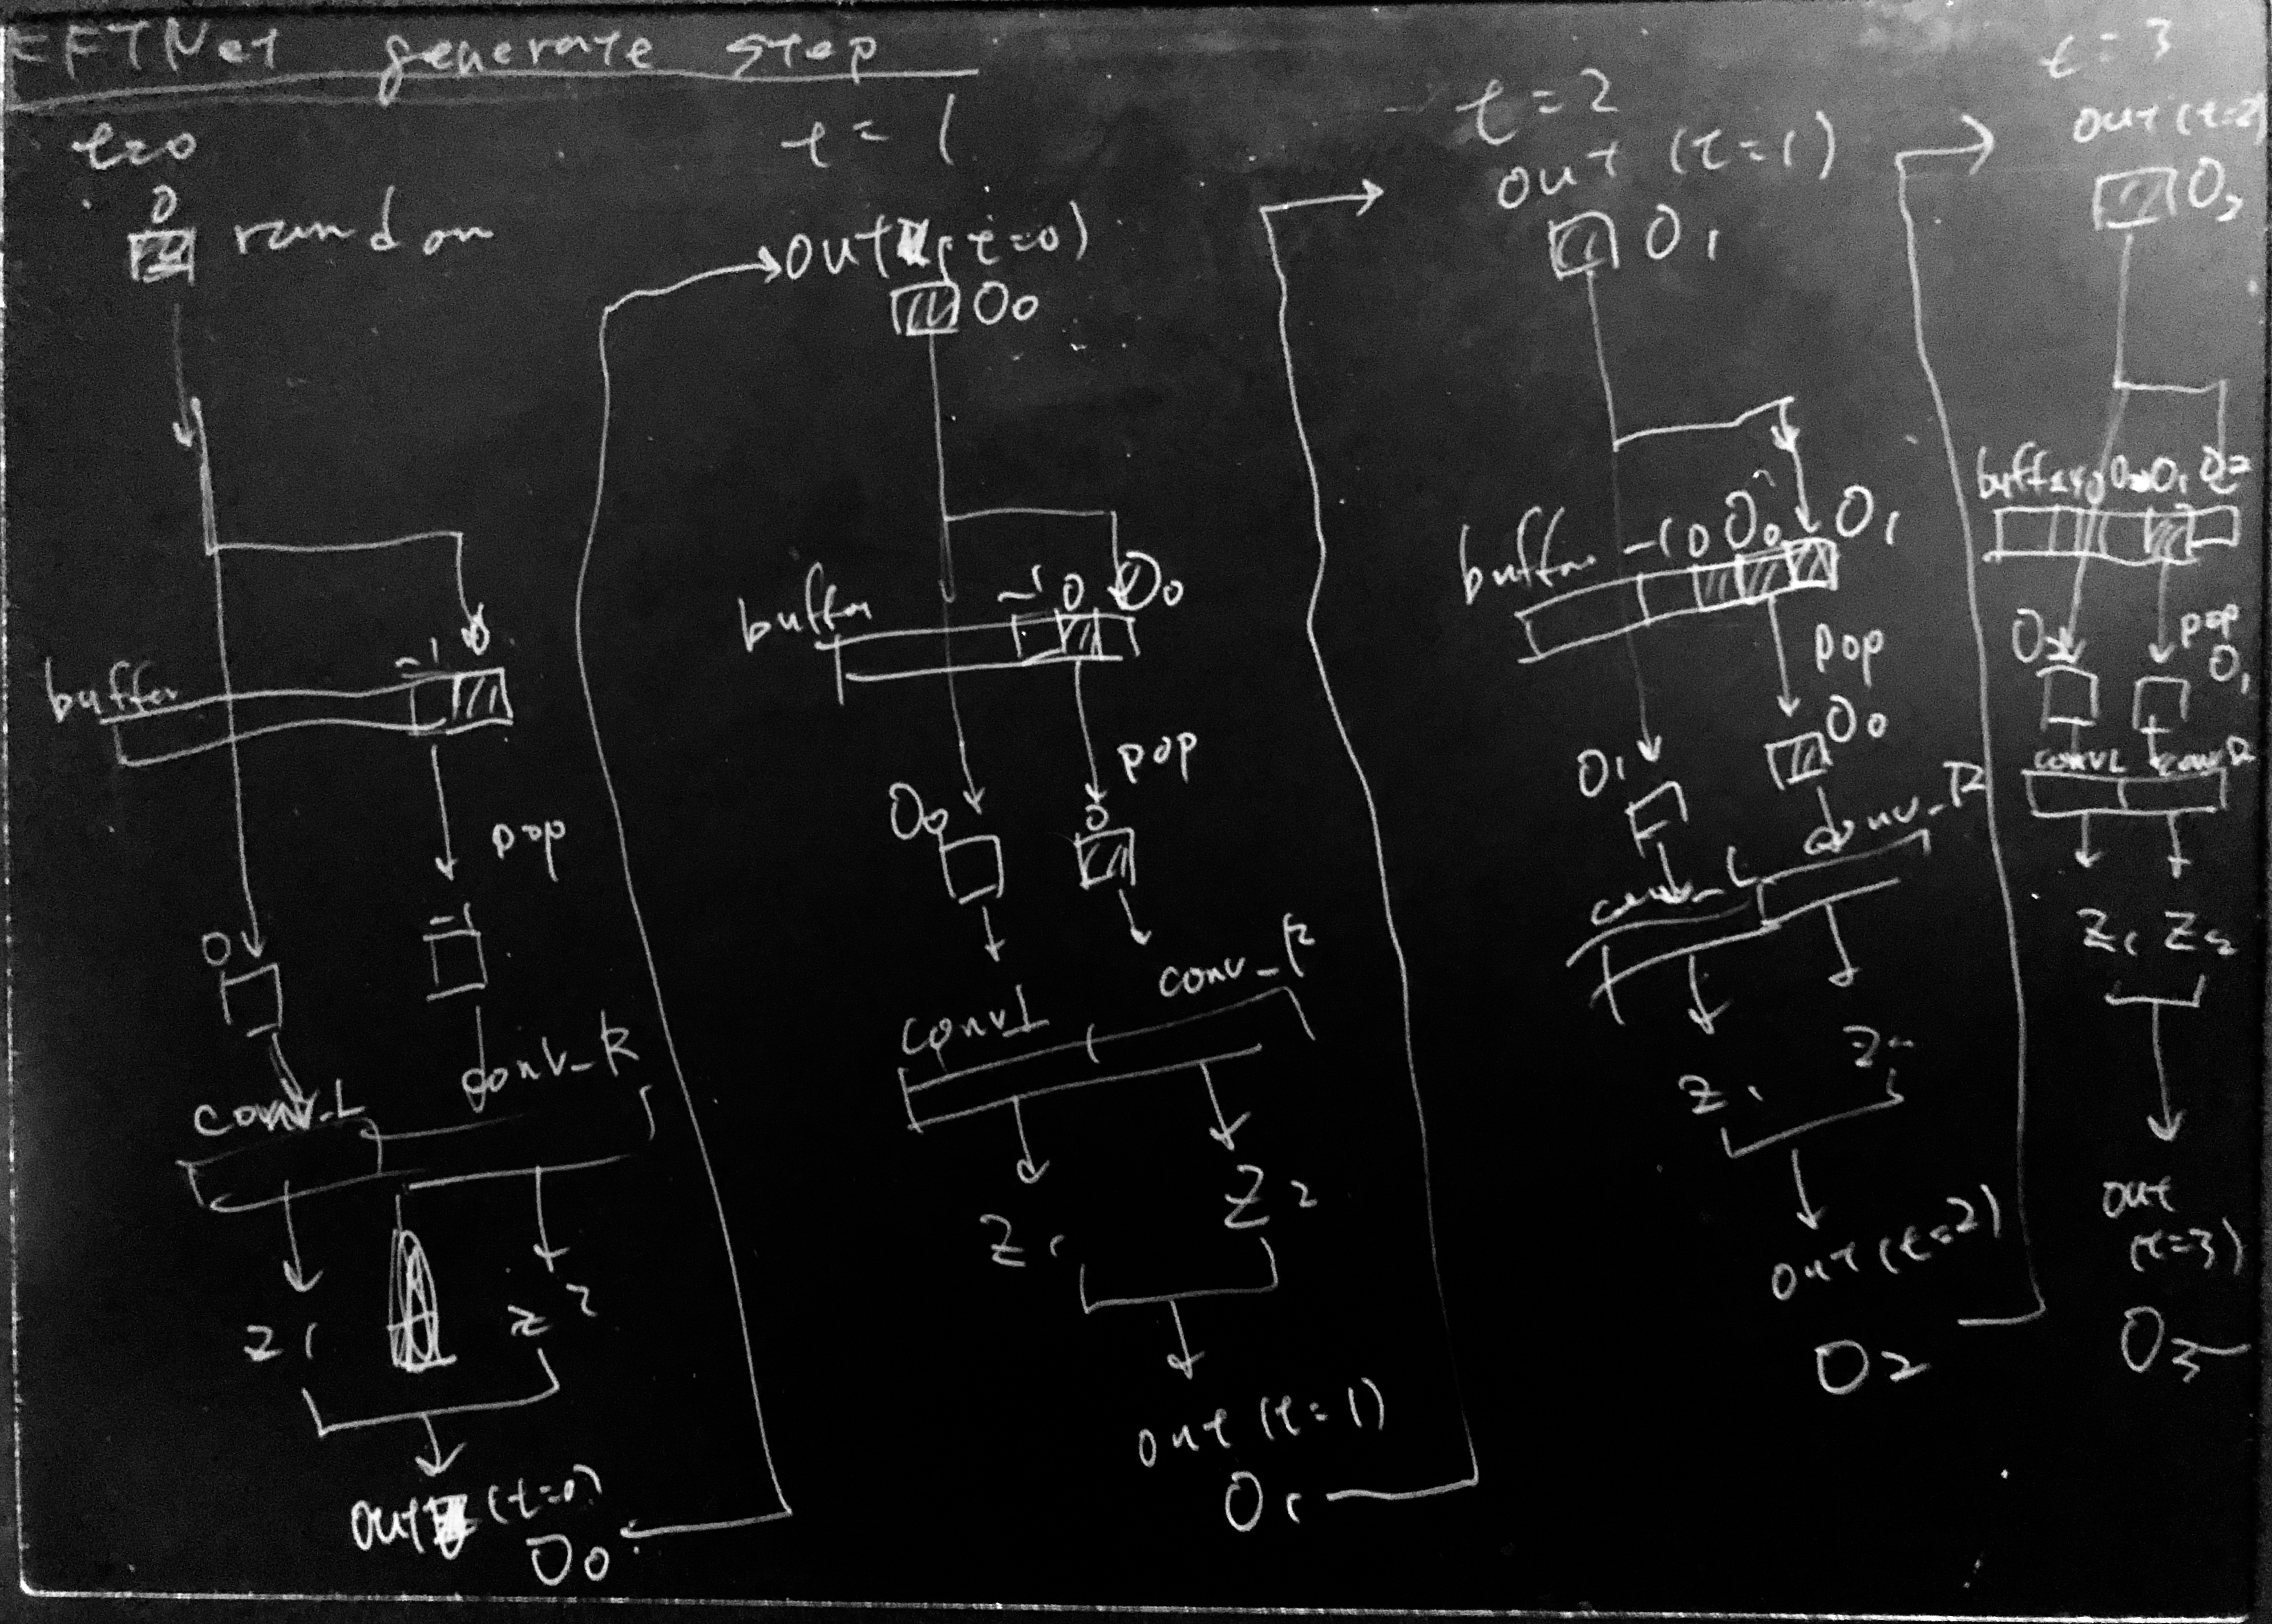 FFTNet generate step
t=0
0
random
buffer
-1 0
pop
0
-1
conv_L
conv_R
z1
z2
out (t=0)
O0
t=1
out (t=0)
O0
buffer
-1 0 O0
pop
O0
0
conv L
conv_R
z1
z2
out (t=1)
O1
t=2
out (t=1)
O1
buffer
-1 0 O0 O1
pop
O1
O0
conv_L
conv_R
z1
z2
out (t=2)
O2
t=3
out (t=2)
O2
buffer 0 O0 O1 O2
pop
O2
O1
conv L
conv R
z1 z2
out
(t=3)
O3